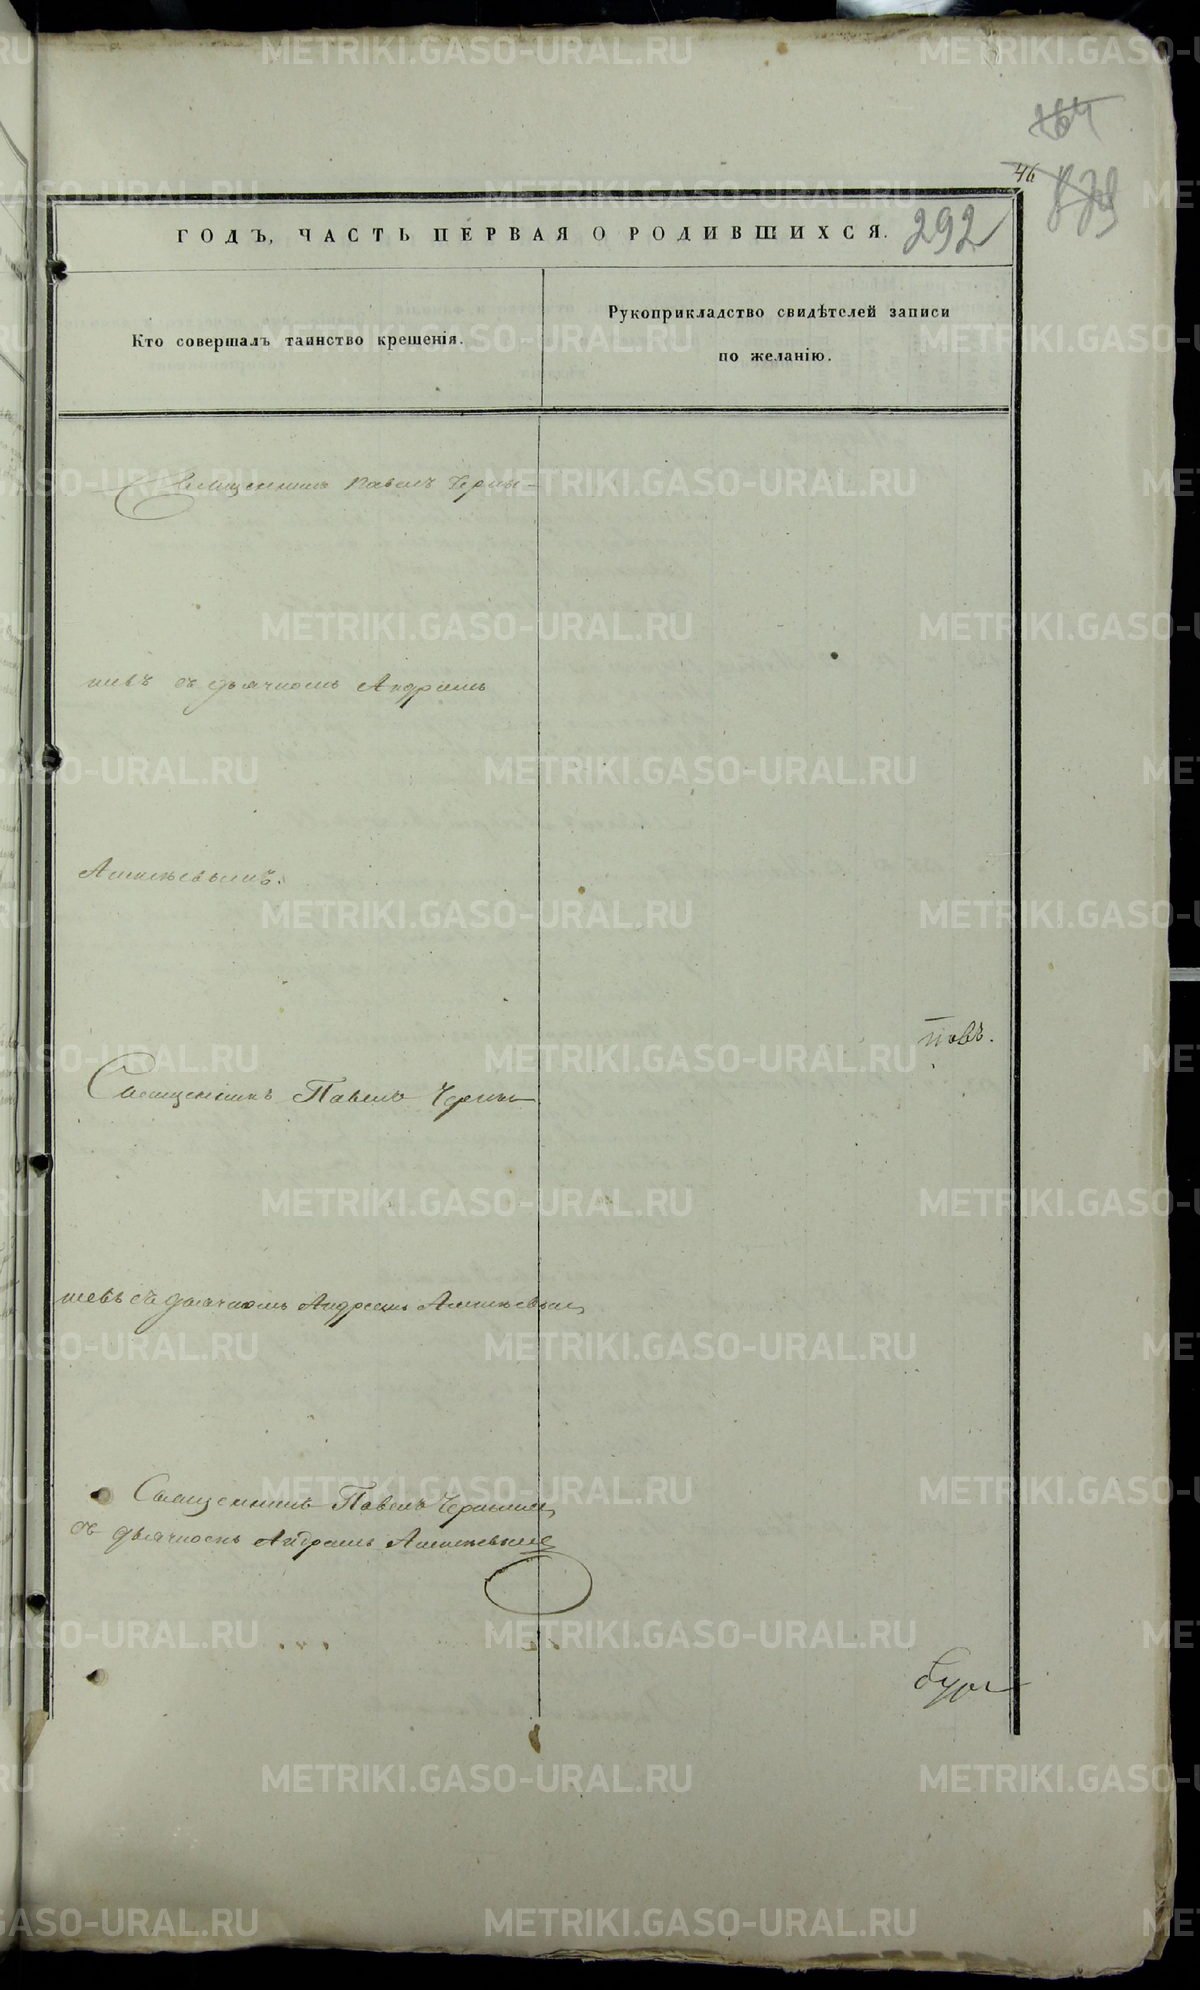 46
292
ГОДЪ, ЧАСТЬ ПЕРВАЯ О РОДИВШИХСЯ.
Кто совершалъ таинство крещенія.
Рукоприкладство свидѣтелей записи
по желанію.
Священникъ Павелъ Черны-
шевъ съ дьячкомъ Андреемъ
повъ.
Священникъ Павелъ Черны
шевъ съ дьячкомъ Андреемъ
Священникъ Павелъ
съ дьячкомъ Андреемъ
METRIKI.GASO-URAL.RU